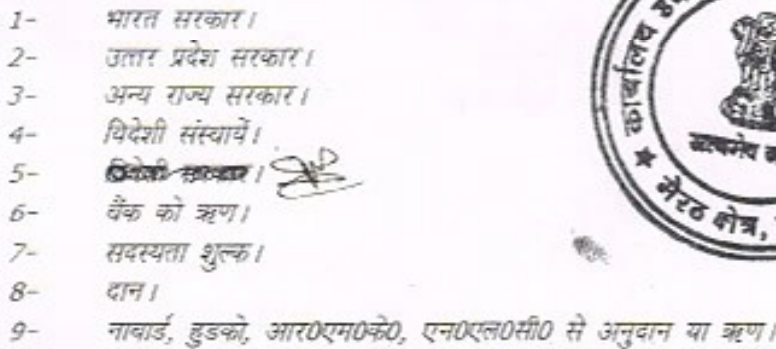 1- भारत सरकार।
2- उत्तर प्रदेश सरकार।
3- अन्य राज्य सरकार।
4- विदेशी संस्थायें।
5-
6- बैंक को ऋण।
7- सदस्यता शुल्क।
8- दान।
9- नाबार्ड, हुडको, आर0एम0के0, एन0एल0सी0 से अनुदान या ऋण।
कार्यालय
मेरठ क्षेत्र,